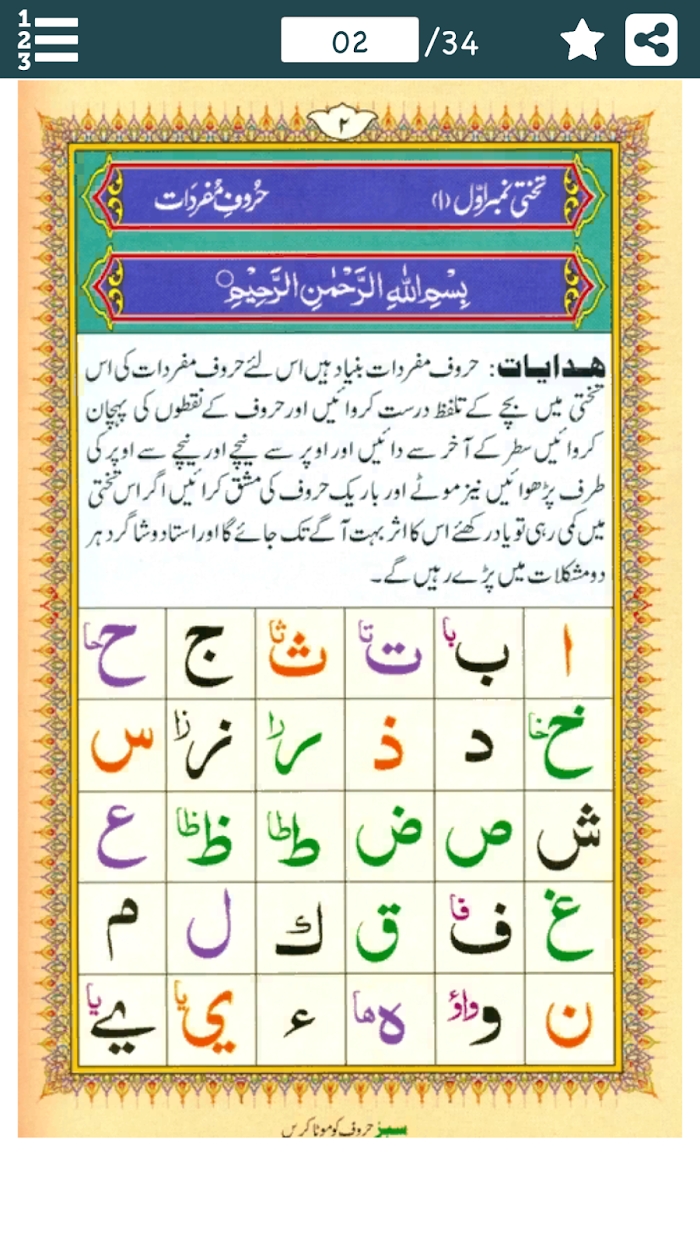 1
2
3
02 /34
٢
تختی نمبر اوّل (١) حُروفِ مُفرَدَات
بِسْمِ اللهِ الرَّحْمٰنِ الرَّحِيْمِ
ھدایات: حروف مفردات بنیاد ہیں اس لئے حروف مفردات کی اس
تختی میں بچے کے تلفظ درست کروائیں اور حروف کے نقطوں کی پہچان
کروائیں سطر کے آخر سے دائیں اور اوپر سے نیچے اور نیچے سے اوپر کی
طرف پڑھوائیں نیز موٹے اور باریک حروف کی مشق کرائیں اگر اس تختی
میں کمی رہی تو یاد رکھئے اس کا اثر بہت آگے تک جائے گا اور استاد و شاگرد ہر
دو مشکلات میں پڑے رہیں گے۔
ا ب با ت تا ث ثا ج ح حا
خ خا د ذ ر را ز زا س
ش ص ض ط طا ظ ظا ع
غ ف فا ق ك ل م
ن و واؤ ه ها ء ي يا ے يا
سبز حروف کو موٹا کریں